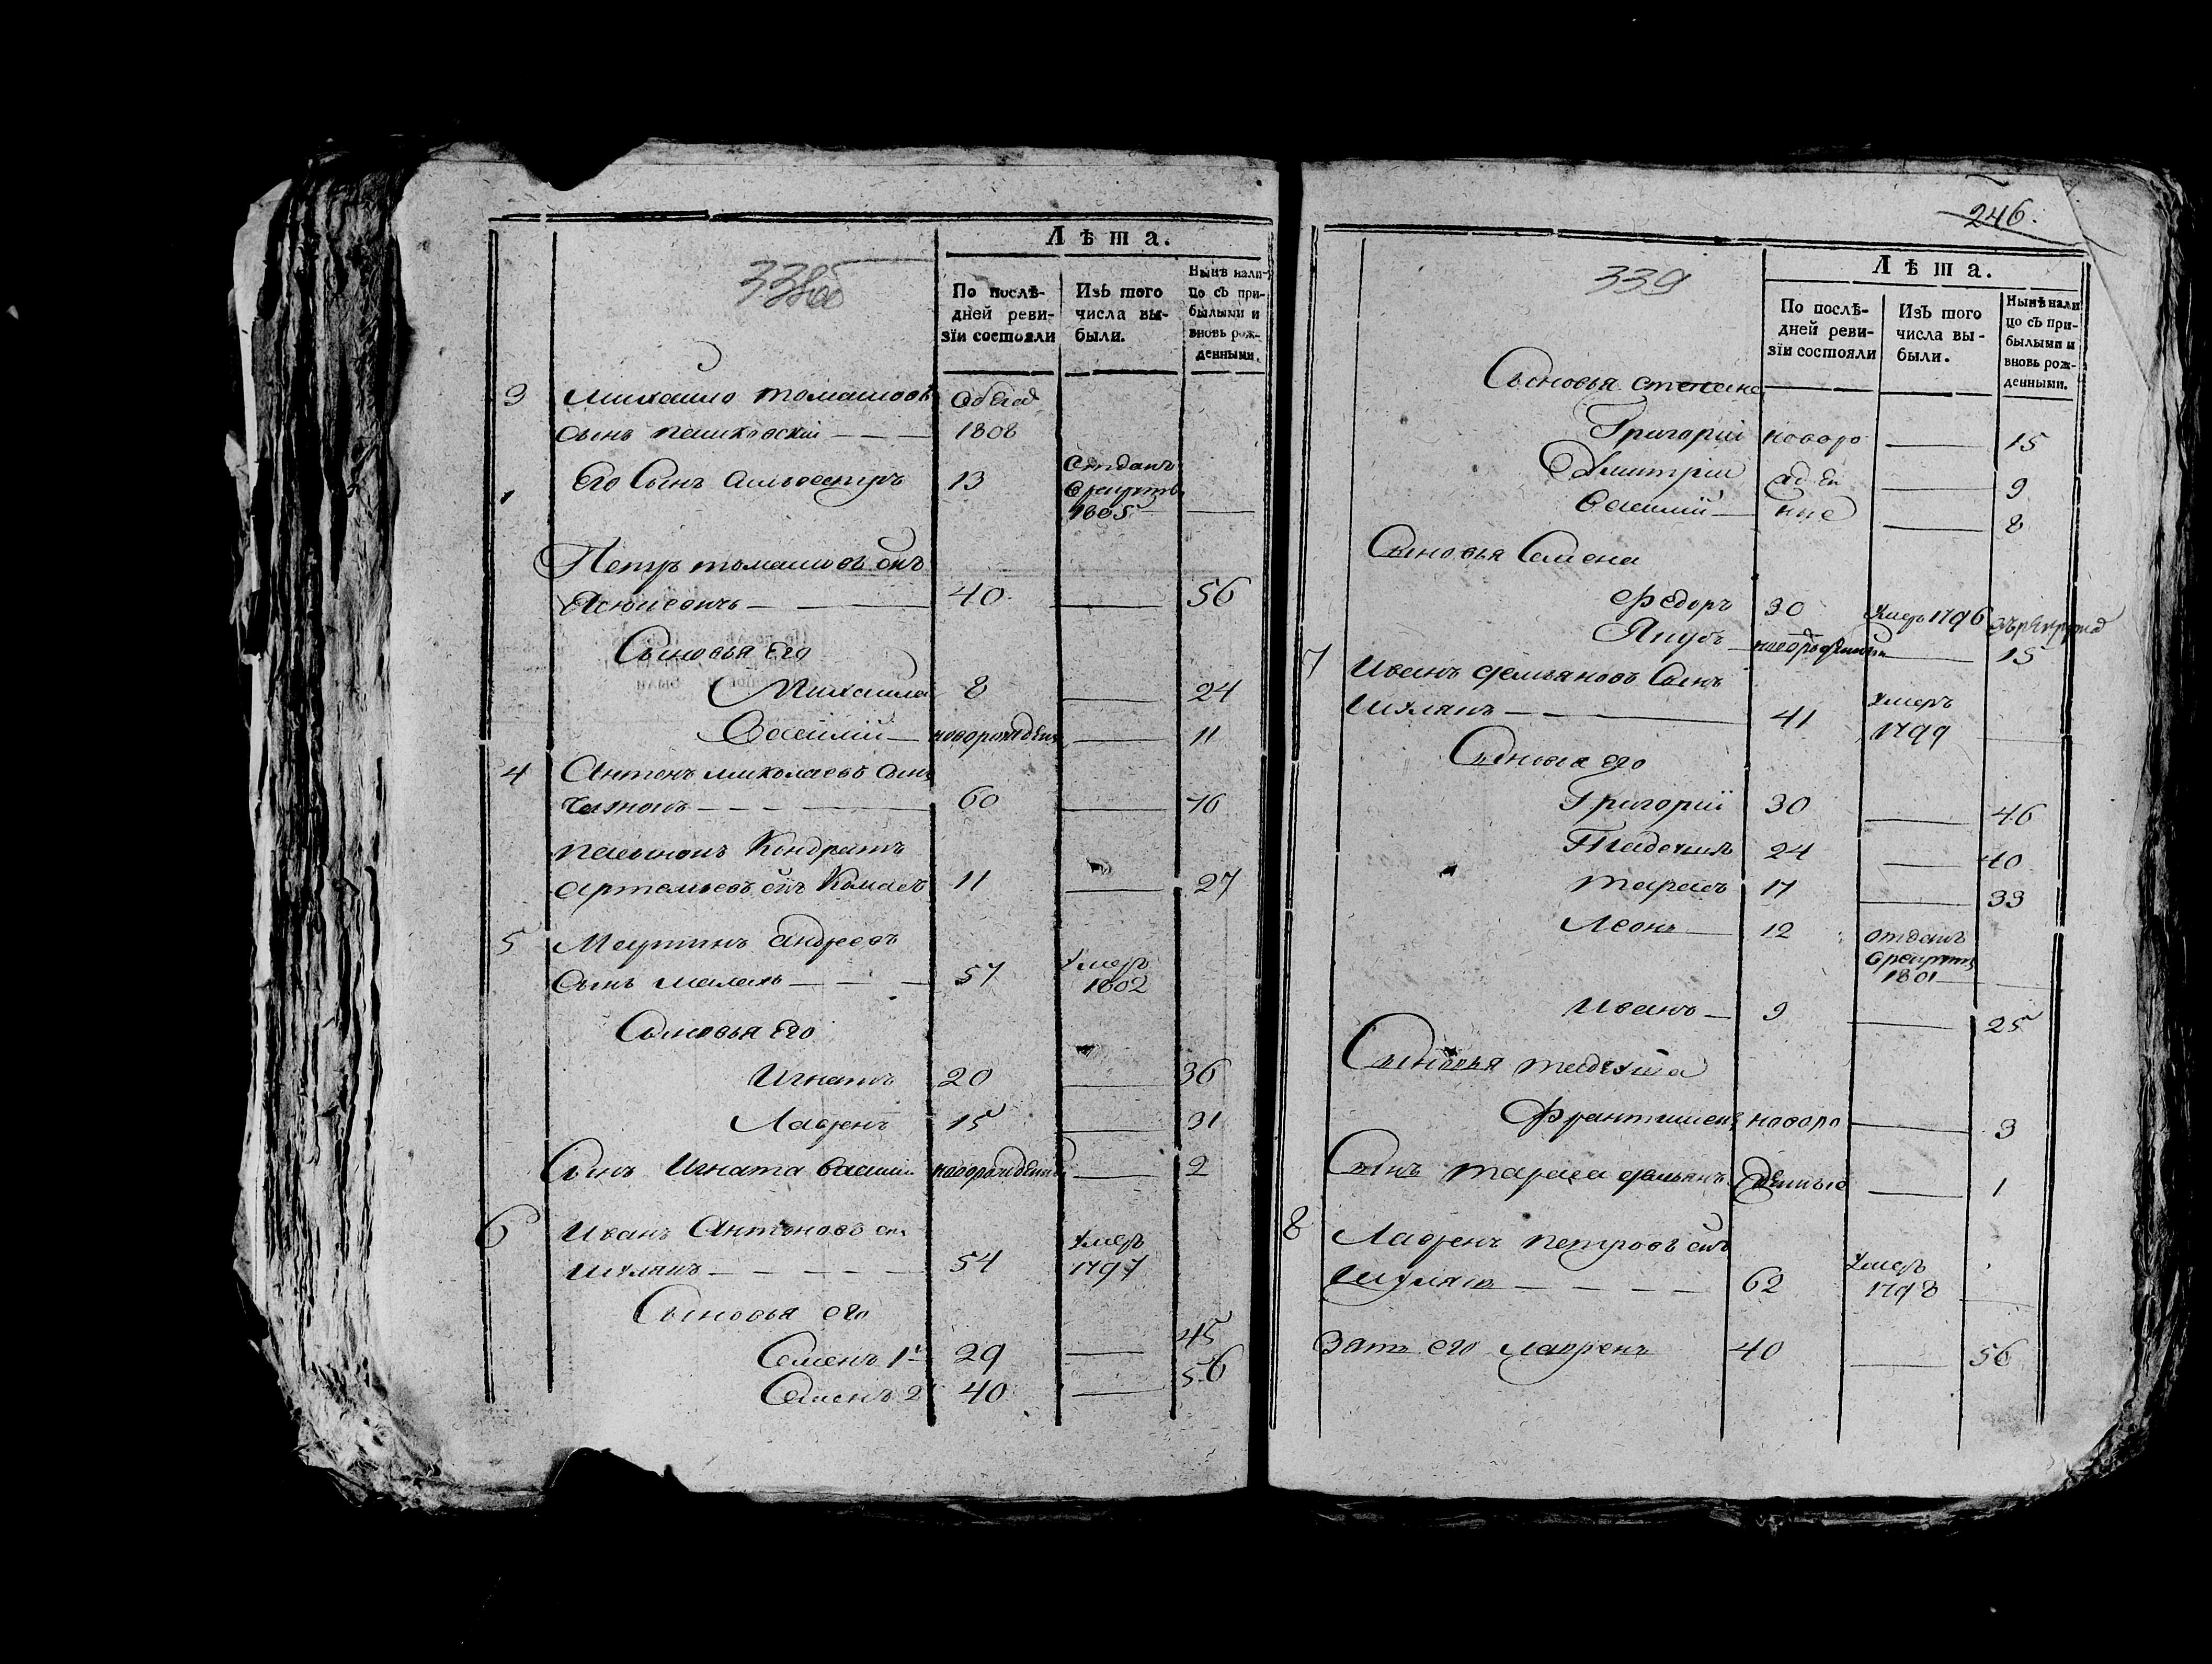 338об
Лѣта.
По послѣ-
дней реви-
зіи состояли
Изъ того
числа вы-
были.
Нынѣ нали-
цо съ при-
былыми и
вновь рож-
денными.
3 Михаило томашовъ
сынъ пашковскій
1808
1 Его Сынъ Сильвестръ 13 отданъ
1805
Петръ томашовъ снъ
40 56
Сыновья Его
Михаила 8 24
Василій новорожден 11
4 Антонъ миколаевъ сынъ
60 76
Кондратъ
артемьевъ снъ 11 27
5 Мартинъ андреевъ
Сынъ 57 умеръ
1802
Сыновья Его
Игнатъ 20 36
Лавренъ 15 31
Сынъ Игната Василий новорожденный 2
6 Иванъ Антоновъ снъ
Шулякъ 54 умеръ
1797
Сыновья его
Семенъ 1й 29 45
Семенъ 2й 40 56
246.
339
Лѣта.
По послѣ-
дней реви-
зіи состояли
Изъ того
числа вы-
были.
Нынѣ нали
цо съ при-
былыми и
вновь рож-
денными.
Сыновья степана
Григорій новоро 15
Дмитрій 9
Василий ные 8
Сыновья Семена
Федоръ 30 умеръ 1796
Якубъ 15
7 Иванъ демьяновъ Сынъ
Шулякъ 41 умеръ
1799
Сыновья его
Григорій 30 46
Тадеушъ 24 40
тарасъ 17 33
Леонъ 12 отданъ
1801
Иванъ 9 25
Сыновья тадеуша
Франтишекъ новоро 3
Сынъ тараса демьянъ денные 1
8 Лавренъ петровъ снъ
Шулякъ 62 умеръ
1798
Зять его лавренъ 40 56